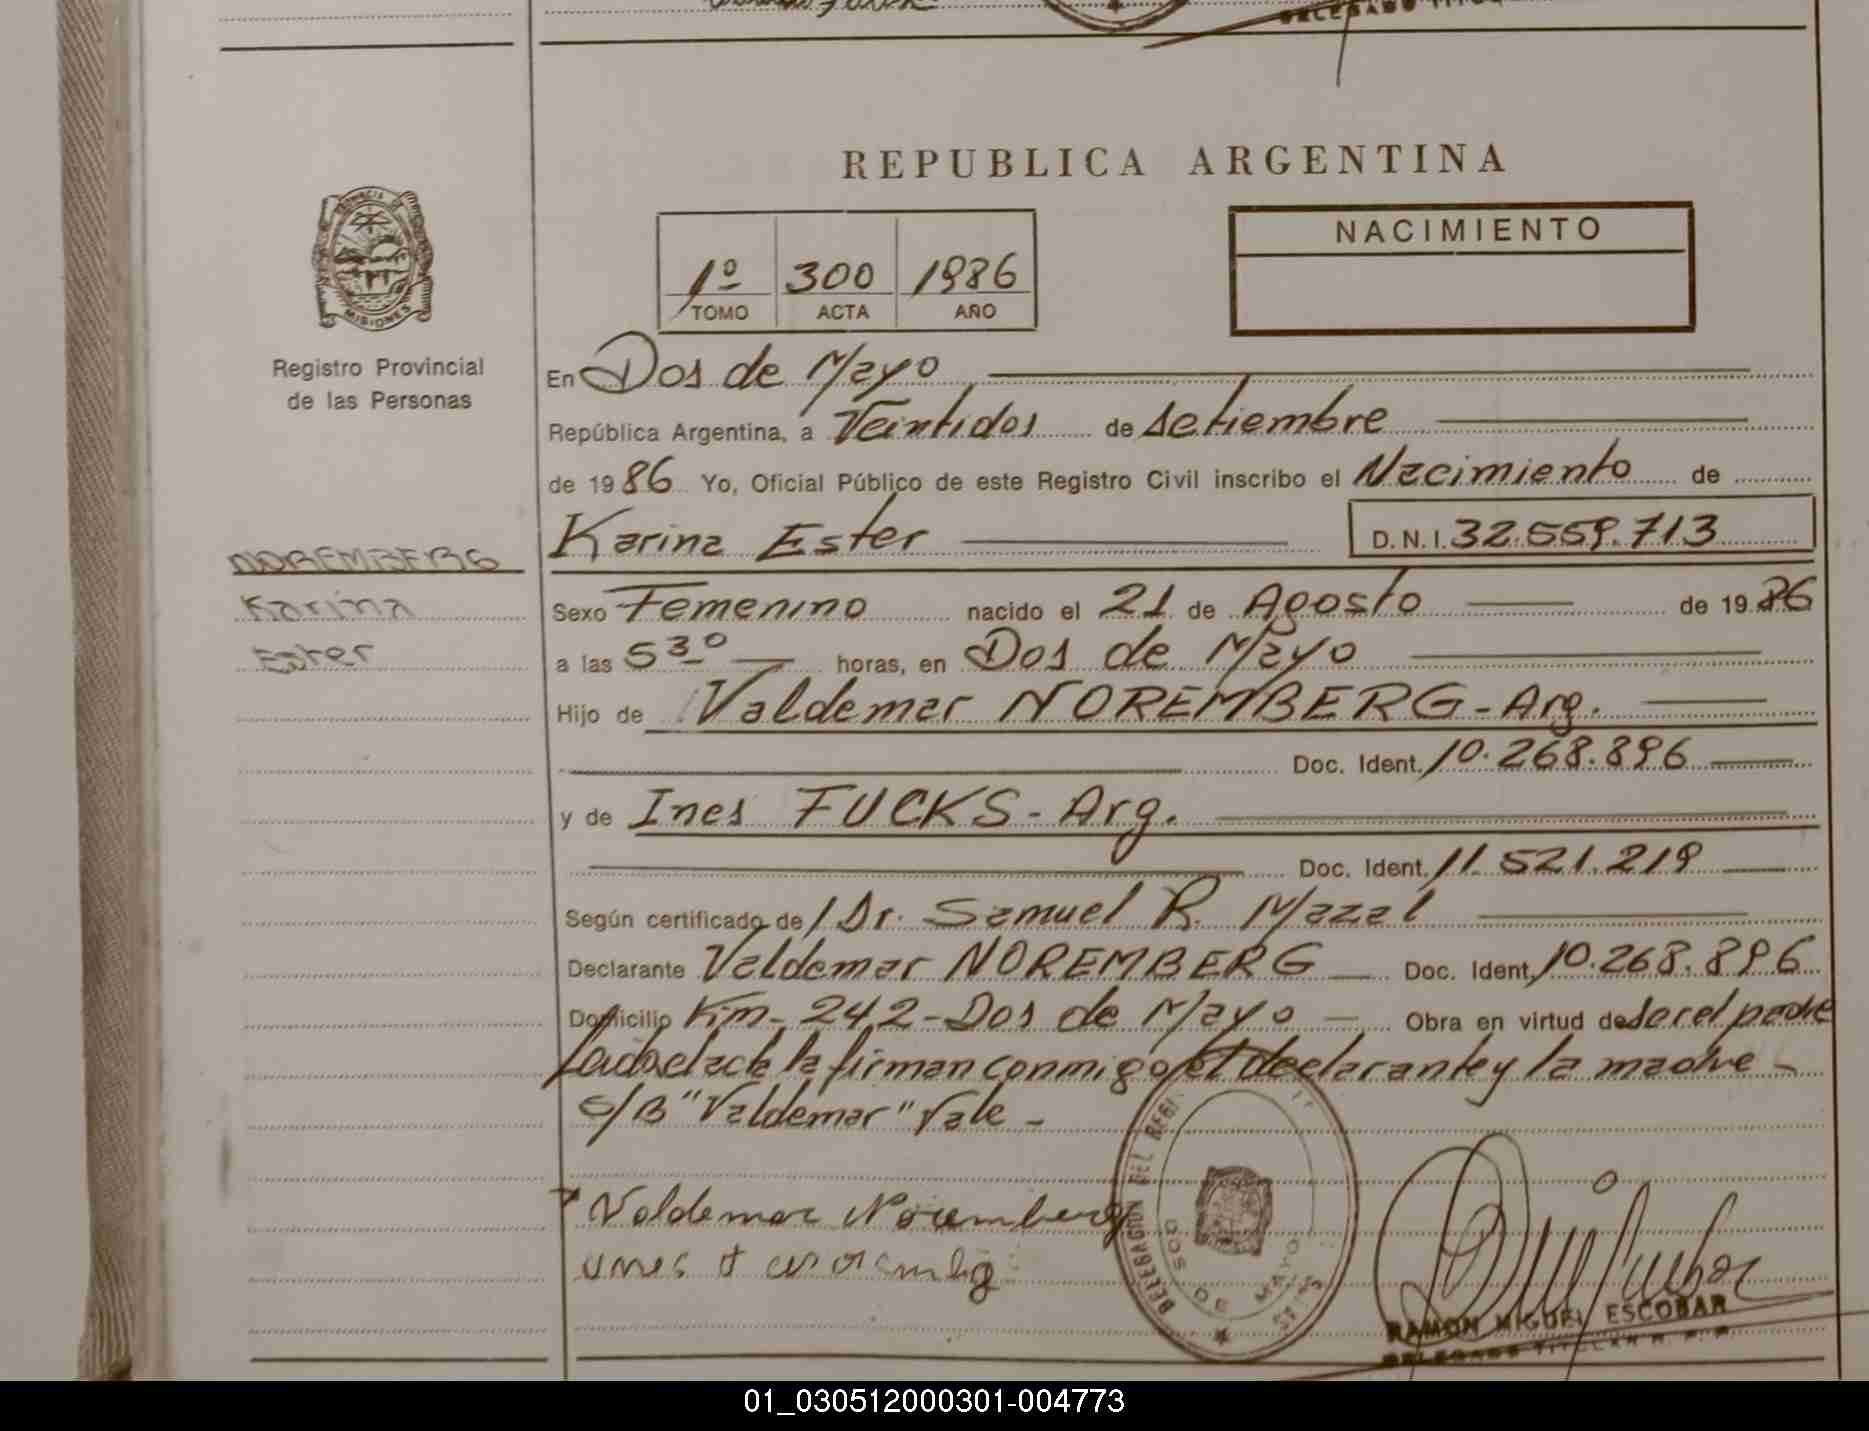 DELEGADO TITUL
REPUBLICA ARGENTINA
PROVINCIA DE
MISIONES
NACIMIENTO
1º 300 1986
TOMO ACTA AÑO
Registro Provincial
de las Personas
En Dos de Mayo
República Argentina, a Veintidos de Setiembre
de 1986 Yo, Oficial Público de este Registro Civil inscribo el Nacimiento de
Karina Ester D.N.I. 32.559.713
NOREMBERG
Karina
Ester
Sexo Femenino nacido el 21 de Agosto de 1986
a las 5 30 horas, en Dos de Mayo
Hijo de Valdemar NOREMBERG - Arg.
Doc. Ident. 10.268.896
y de Ines FUCKS - Arg.
Doc. Ident. 11.521.219
Según certificado de / Dr. Samuel R. Mazal
Declarante Valdemar NOREMBERG Doc. Ident. 10.268.896
Domicilio Km - 242 - Dos de Mayo - Obra en virtud de ser el padre
Leida el acta la firman conmigo el declarante y la madre -
S/B "Valdemar" Vale -
Valdemar Noremberg
DELEGACION DEL REGI
DOS DE MAYO
RAMON MIGUEL ESCOBAR
DELEGADO TITULAR R. P. P.
01_030512000301-004773